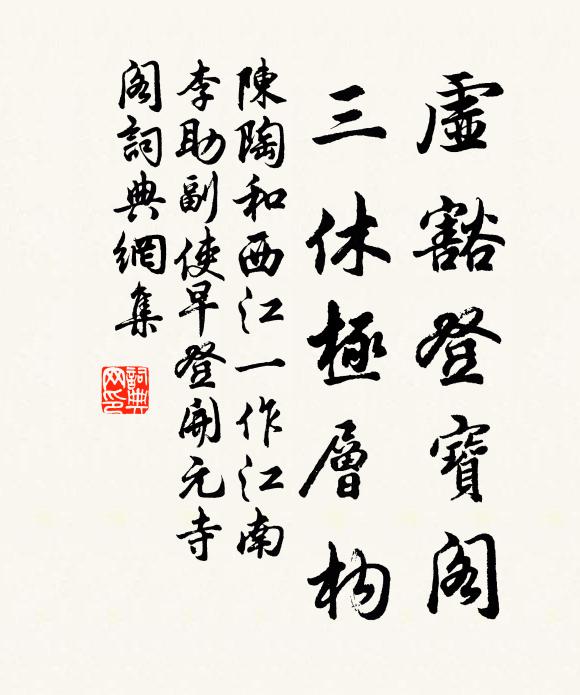 虛豁登寶閣
三休極層构
陳陶和西江一作江南
李助副使早登開元寺
閣詞典網集
詞典
网印